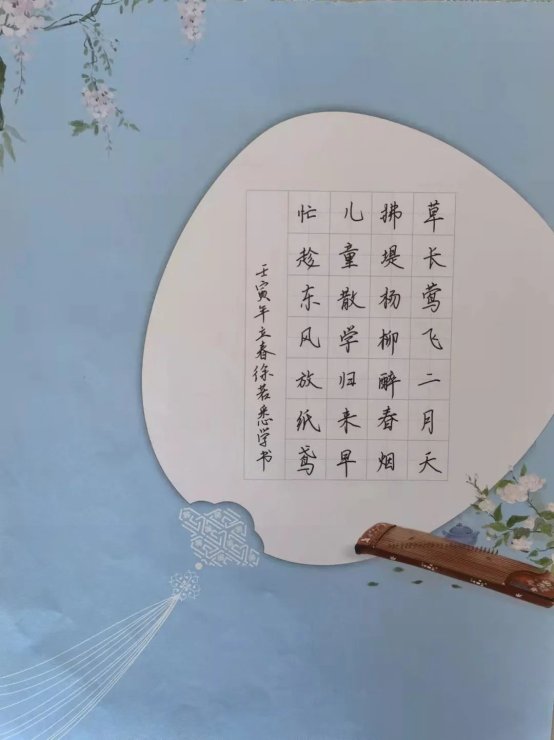 草长莺飞二月天
拂堤杨柳醉春烟
儿童散学归来早
忙趁东风放纸鸢
壬寅年立春徐若悉学书